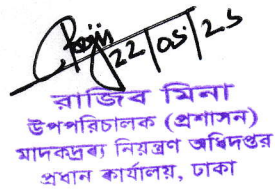 22/05/25
রাজিব মিনা
উপপরিচালক (প্রশাসন)
মাদকদ্রব্য নিয়ন্ত্রণ অধিদপ্তর
প্রধান কার্যালয়, ঢাকা